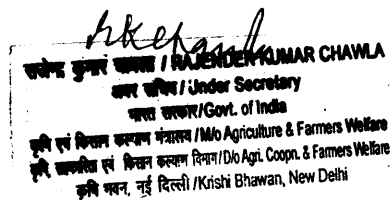 राजेन्द्र कुमार चावला / RAJENDER KUMAR CHAWLA
अवर सचिव / Under Secretary
भारत सरकार/Govt. of India
कृषि एवं किसान कल्याण मंत्रालय / M/o Agriculture & Farmers Welfare
कृषि, सहकारिता एवं किसान कल्याण विभाग/D/o Agri. Coopn. & Farmers Welfare
कृषि भवन, नई दिल्ली /Krishi Bhawan, New Delhi